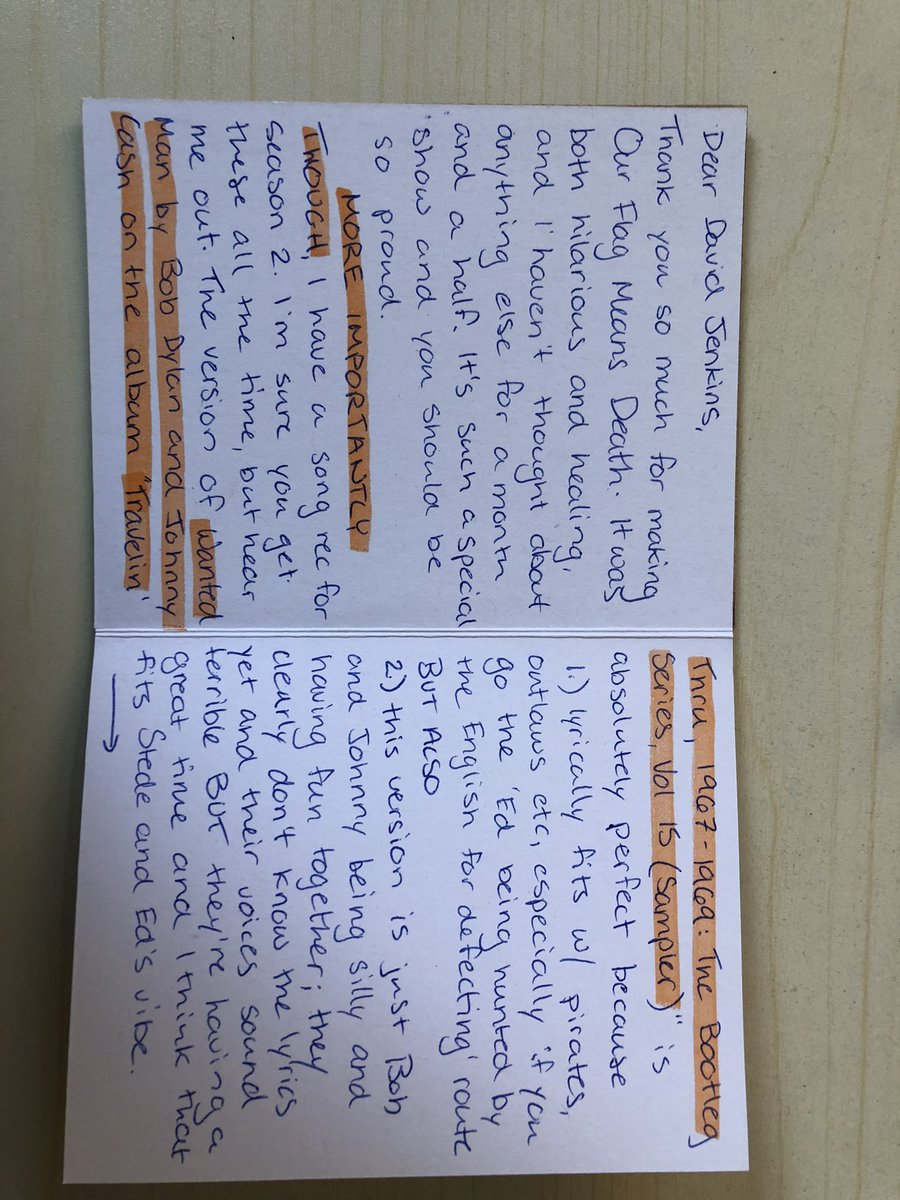 Dear David Jenkins,
Thank you so much for making
Our Flag Means Death. It was
both hilarious and healing,
and I haven't thought about
anything else for a month
and a half. It's such a special
show and you should be
so proud.
MORE IMPORTANTLY
THOUGH, I have a song rec for
season 2. I'm sure you get
these all the time, but hear
me out. The version of Wanted
Man by Bob Dylan and Johnny
Cash on the album "Travelin'
Thru, 1967-1969: The Bootleg
Series, Vol 15 (Sampler)" is
absolutely perfect because
1.) lyrically fits w/ pirates,
outlaws etc, especially if you
go the 'Ed being hunted by
the English for defecting' route
BUT ALSO
2.) this version is just Bob
and Johnny being silly and
having fun together; they
clearly don't know the lyrics
yet and their voices sound
terrible BUT they're having a
great time and I think that
fits Stede and Ed's vibe.
→